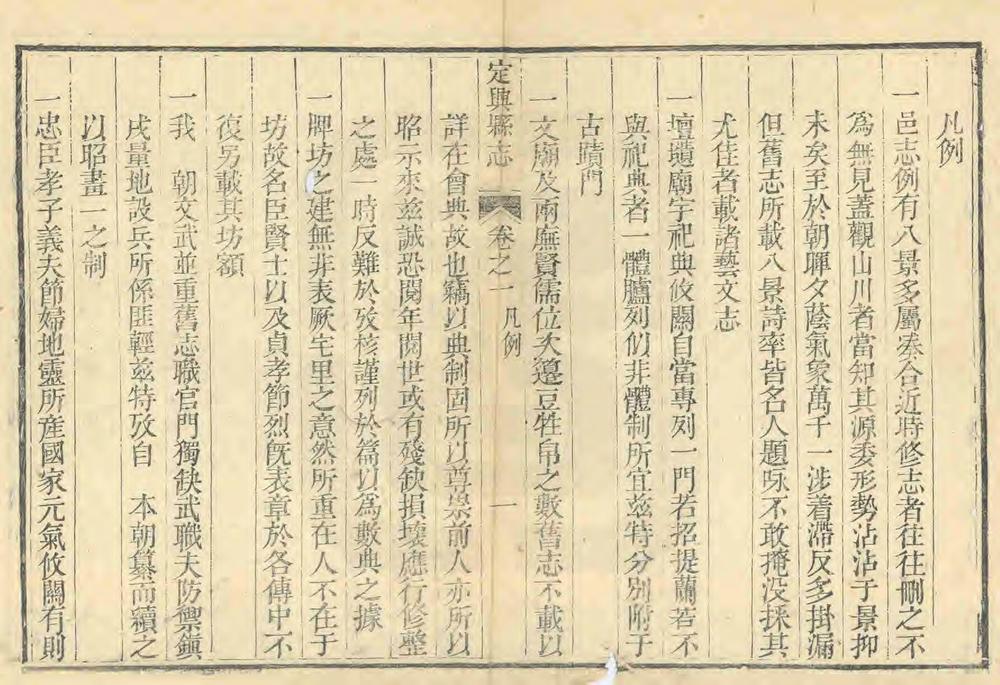 凡例
一邑志例有八景多屬湊合近時修志者往往刪之不
為無見蓋觀山川者當知其源委形勢沾沾于景抑
末矣至於朝暉夕蔭氣象萬千一涉着滯反多掛漏
但舊志所載八景詩率皆名人題咏不敢掩没採其
尤佳者載諸藝文志
一壇壝廟宇祀典攸關自當專列一門若招提蘭若不
與祀典者一體臚列似非體制所宜茲特分別附于
古蹟門
一文廟及兩廡賢儒位次籩豆牲帛之數舊志不載以
定興縣志 卷之一 凡例 一
詳在會典故也竊以典制固所以尊崇前人亦所以
昭示來茲誠恐閱年閱世或有殘缺損壞應行修整
之處一時反難於攷核謹列於篇以為數典之據
一牌坊之建無非表厥宅里之意然所重在人不在于
坊故名臣賢士以及貞孝節烈旣表章於各傳中不
復另載其坊額
一我 朝文武並重舊志職官門獨缺武職夫防禦鎮
戍量地設兵所係匪輕茲特攷自 本朝纂而續之
以昭畫一之制
一忠臣孝子義夫節婦地靈所産國家元氣攸關有則